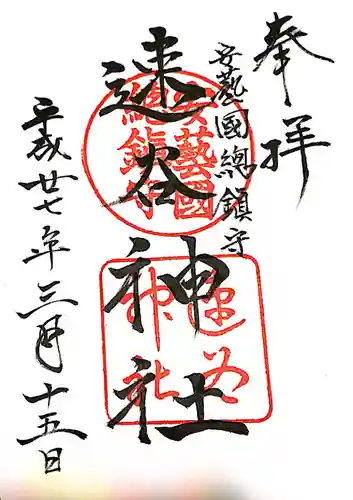 奉拝
安藝國總鎮守
速谷神社
平成廿七年三月十五日
安藝國
總鎮守
速谷
神社